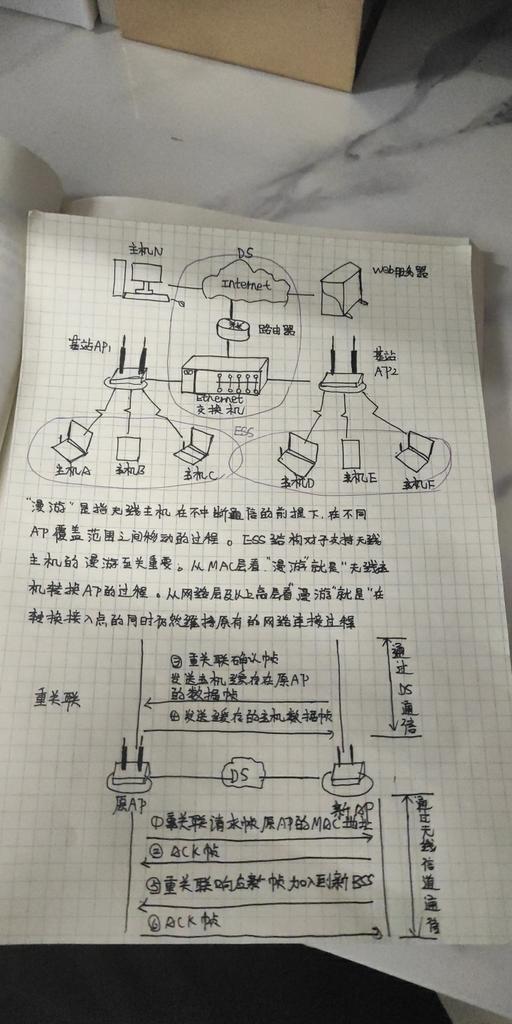 主机N
DS
Internet
Web服务器
路由器
基站AP1
基站
AP2
Ethernet
交换机
ESS
主机A
主机B
主机C
主机D
主机E
主机F
"漫游"是指无线主机在不中断通信的前提下,在不同
AP覆盖范围之间移动的过程。ESS结构对于支持无线
主机的漫游至关重要。从MAC层看"漫游"就是"无线主
机转换AP的过程。从网络层及以上层看"漫游"就是"在
转换接入点的同时有效维持原有的网络连接过程
重关联
③重关联确认帧
发送主机缓存在原AP
的数据帧
④发送缓存的主机数据帧
通过DS通信
DS
原AP
新AP
①重关联请求帧 原AP的MAC地址
②ACK帧
⑤重关联响应帧 加入到新BSS
⑥ACK帧
通过无线信道通信